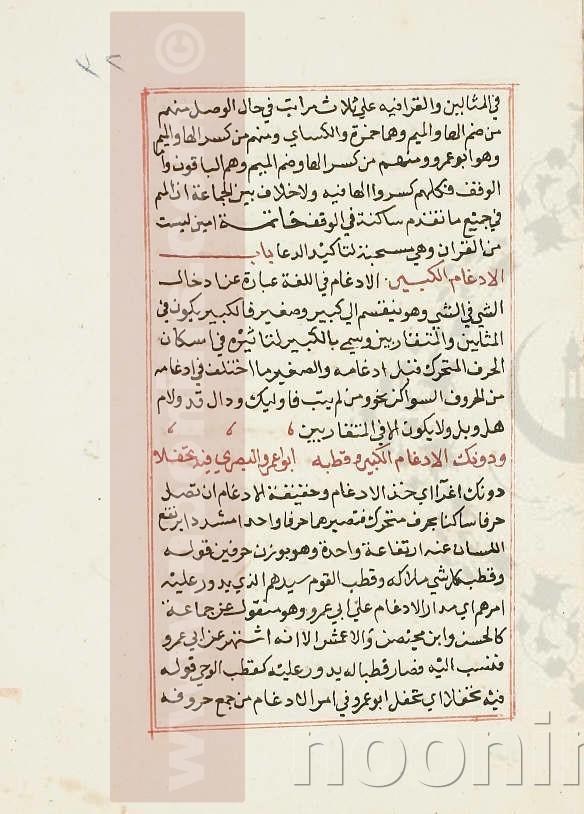 في المثالين والقرا فيه علي ثلاث مراتب في حال الوصل منهم
من ضم الها والميم وهما حمزة والكساي ومنهم من كسر الها والميم
وهو ابو عمرو ومنهم من كسر الها وضم الميم وهم الباقون وا
الوقف فكلهم كسروا الها فيه ولا خلاف بين الجماعة ان الميم
في جميع ما تقدم ساكنة في الوقف خاتمة امين ليست
من القران وهي مستحبة لتاكيد الدعا باب
الادغام الكبير الادغام في اللغة عبارة عن ادخال
الشي في الشي وهو ينقسم الي كبير وصغير فالكبير يكون في
المثلين والمتقاربين وسمي بالكبير لتاثيره في اسكان
الحرف المتحرك قبل ادغامه والصغير ما اختلف في ادغامه
من الحروف السواكن نحو ومن لم يتب فاوليك ودال قد ولام
هل وبل ولا يكون الا في المتقاربين
ودونك الادغام الكبير وقطبه ابو عمرو البصري فيه تحفلا
دونك اغرا اي خذ الادغام وحقيقة الادغام ان تصل
حرفا ساكنا بحرف متحرك فتصيرهما حرفا واحدا مشددا يرتفع
اللسان عنه ارتفاعة واحدة وهو بوزن حرفين قوله
وقطب كل شي ملاكه وقطب القوم سيدهم الذي يدور عليه
امرهم اي مدار الادغام علي ابي عمرو وهو منقول عن جماعة
كالحسن وابن محيصن والاعمش الا انه اشتهر عن ابي عمرو
فنسب اليه فصار قطبا له يدور عليه كقطب الوحي قوله
فيه تحفلا اي تحفل ابو عمرو في امر الادغام من جمع حروفه
noonin